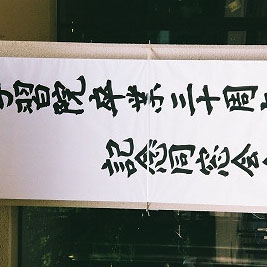 習院卒業三十周
記念同窓会